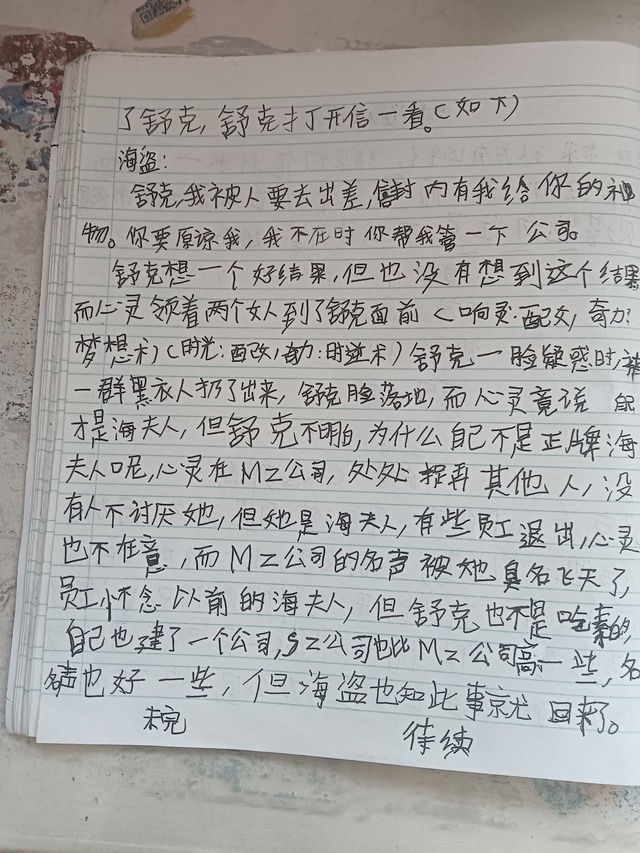 了舒克,舒克打开信一看。(如下)
海盗:
舒克,我被人要去出差,信封内有我给你的神
物。你要原谅我,我不在时你帮我管一下公司。
舒克想一个好结果,但也没有想到这个结果
而心灵领着两个女人到了舒克面前(响灵:配改,奇力:
梦想术)(时光:配改,奇力:时逆术)舒克一脸疑惑时,被
一群黑衣人扔了出来,舒克脸落地,而心灵竟说
才是海夫人,但舒克不明白,为什么自己不是正牌海
夫人呢,心灵在MZ公司,处处捉弄其他人,没
有人不讨厌她,但她是海夫人,有些员工退出,心灵
也不在意,而MZ公司的名声被她臭名飞天了,
员工怀念以前的海夫人,但舒克也不是吃素的,
自己也建了一个公司,SZ公司也比MZ公司高一些,名
声也好一些,但海盗也知此事就回来了。
未完
待续